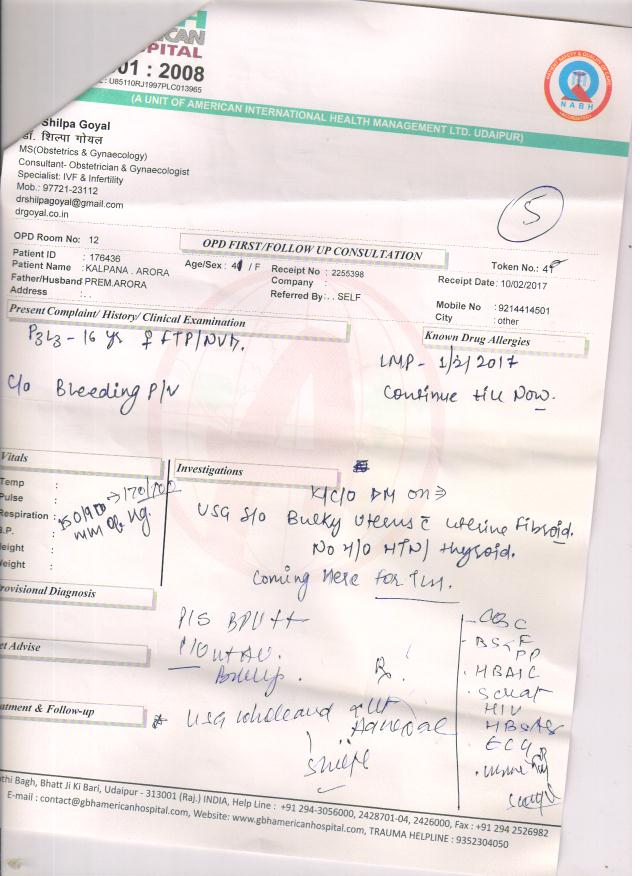 H
AMERICAN
HOSPITAL
01 : 2008
: U85110RJ1997PLC013965
(A UNIT OF AMERICAN INTERNATIONAL HEALTH MANAGEMENT LTD. UDAIPUR)
NABH
Shilpa Goyal
डॉ. शिल्पा गोयल
MS(Obstetrics & Gynaecology)
Consultant- Obstetrician & Gynaecologist
Specialist: IVF & Infertility
Mob.: 97721-23112
drshilpagoyal@gmail.com
drgoyal.co.in
5
OPD Room No: 12
OPD FIRST/FOLLOW UP CONSULTATION
Token No.:
Patient ID : 176436
Patient Name : KALPANA . ARORA
Father/Husband PREM.ARORA
Address : . .
Age/Sex : / F
Receipt No : 2255398
Company :
Referred By: . . SELF
Receipt Date: 10/02/2017
Mobile No : 9214414501
City : other
Present Complaint/ History/ Clinical Examination
Known Drug Allergies
P3L3 - 16 yr ♀ FTP/NVD.
LMP - 1/2/2017
C/o Bleeding P/V
Continue till Now.
Vitals
Temp :
Pulse :
Respiration :
B.P. :
eight :
eight :
150/900 → 170/100
mm of Hg.
Investigations
K/C/O DM on ⇒
USG S/o Bulky Uterus c̄ Uterine Fibroid.
No H/O HTN/ thyroid.
Coming Here for TLH.
rovisional Diagnosis
P/S BPV ++
Bulky.
Rx.
et Advise
atment & Follow-up
USG whole abd
- CBC
- BS F
PP
. HBA1C
. S creat
HIV
HBsAg
ECG
. urine
athi Bagh, Bhatt Ji Ki Bari, Udaipur - 313001 (Raj.) INDIA, Help Line : +91 294-3056000, 2428701-04, 2426000, Fax : +91 294 2526982
E-mail : contact@gbhamericanhospital.com, Website: www.gbhamericanhospital.com, TRAUMA HELPLINE : 9352304050